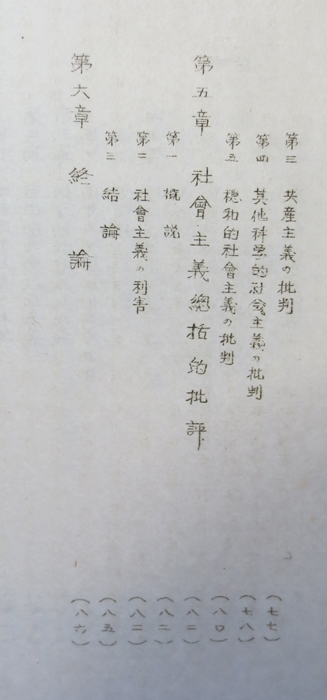 第三 共産主義の批判 (七七)
第四 其他科学的社会主義の批判 (七八)
第五 穏和的社會主義の批判 (八〇)
第五章 社會主義總括的批評 (八二)
第一 概説 (八二)
第二 社會主義の利害 (八二)
第三 結論 (八五)
第六章 終論 (八六)